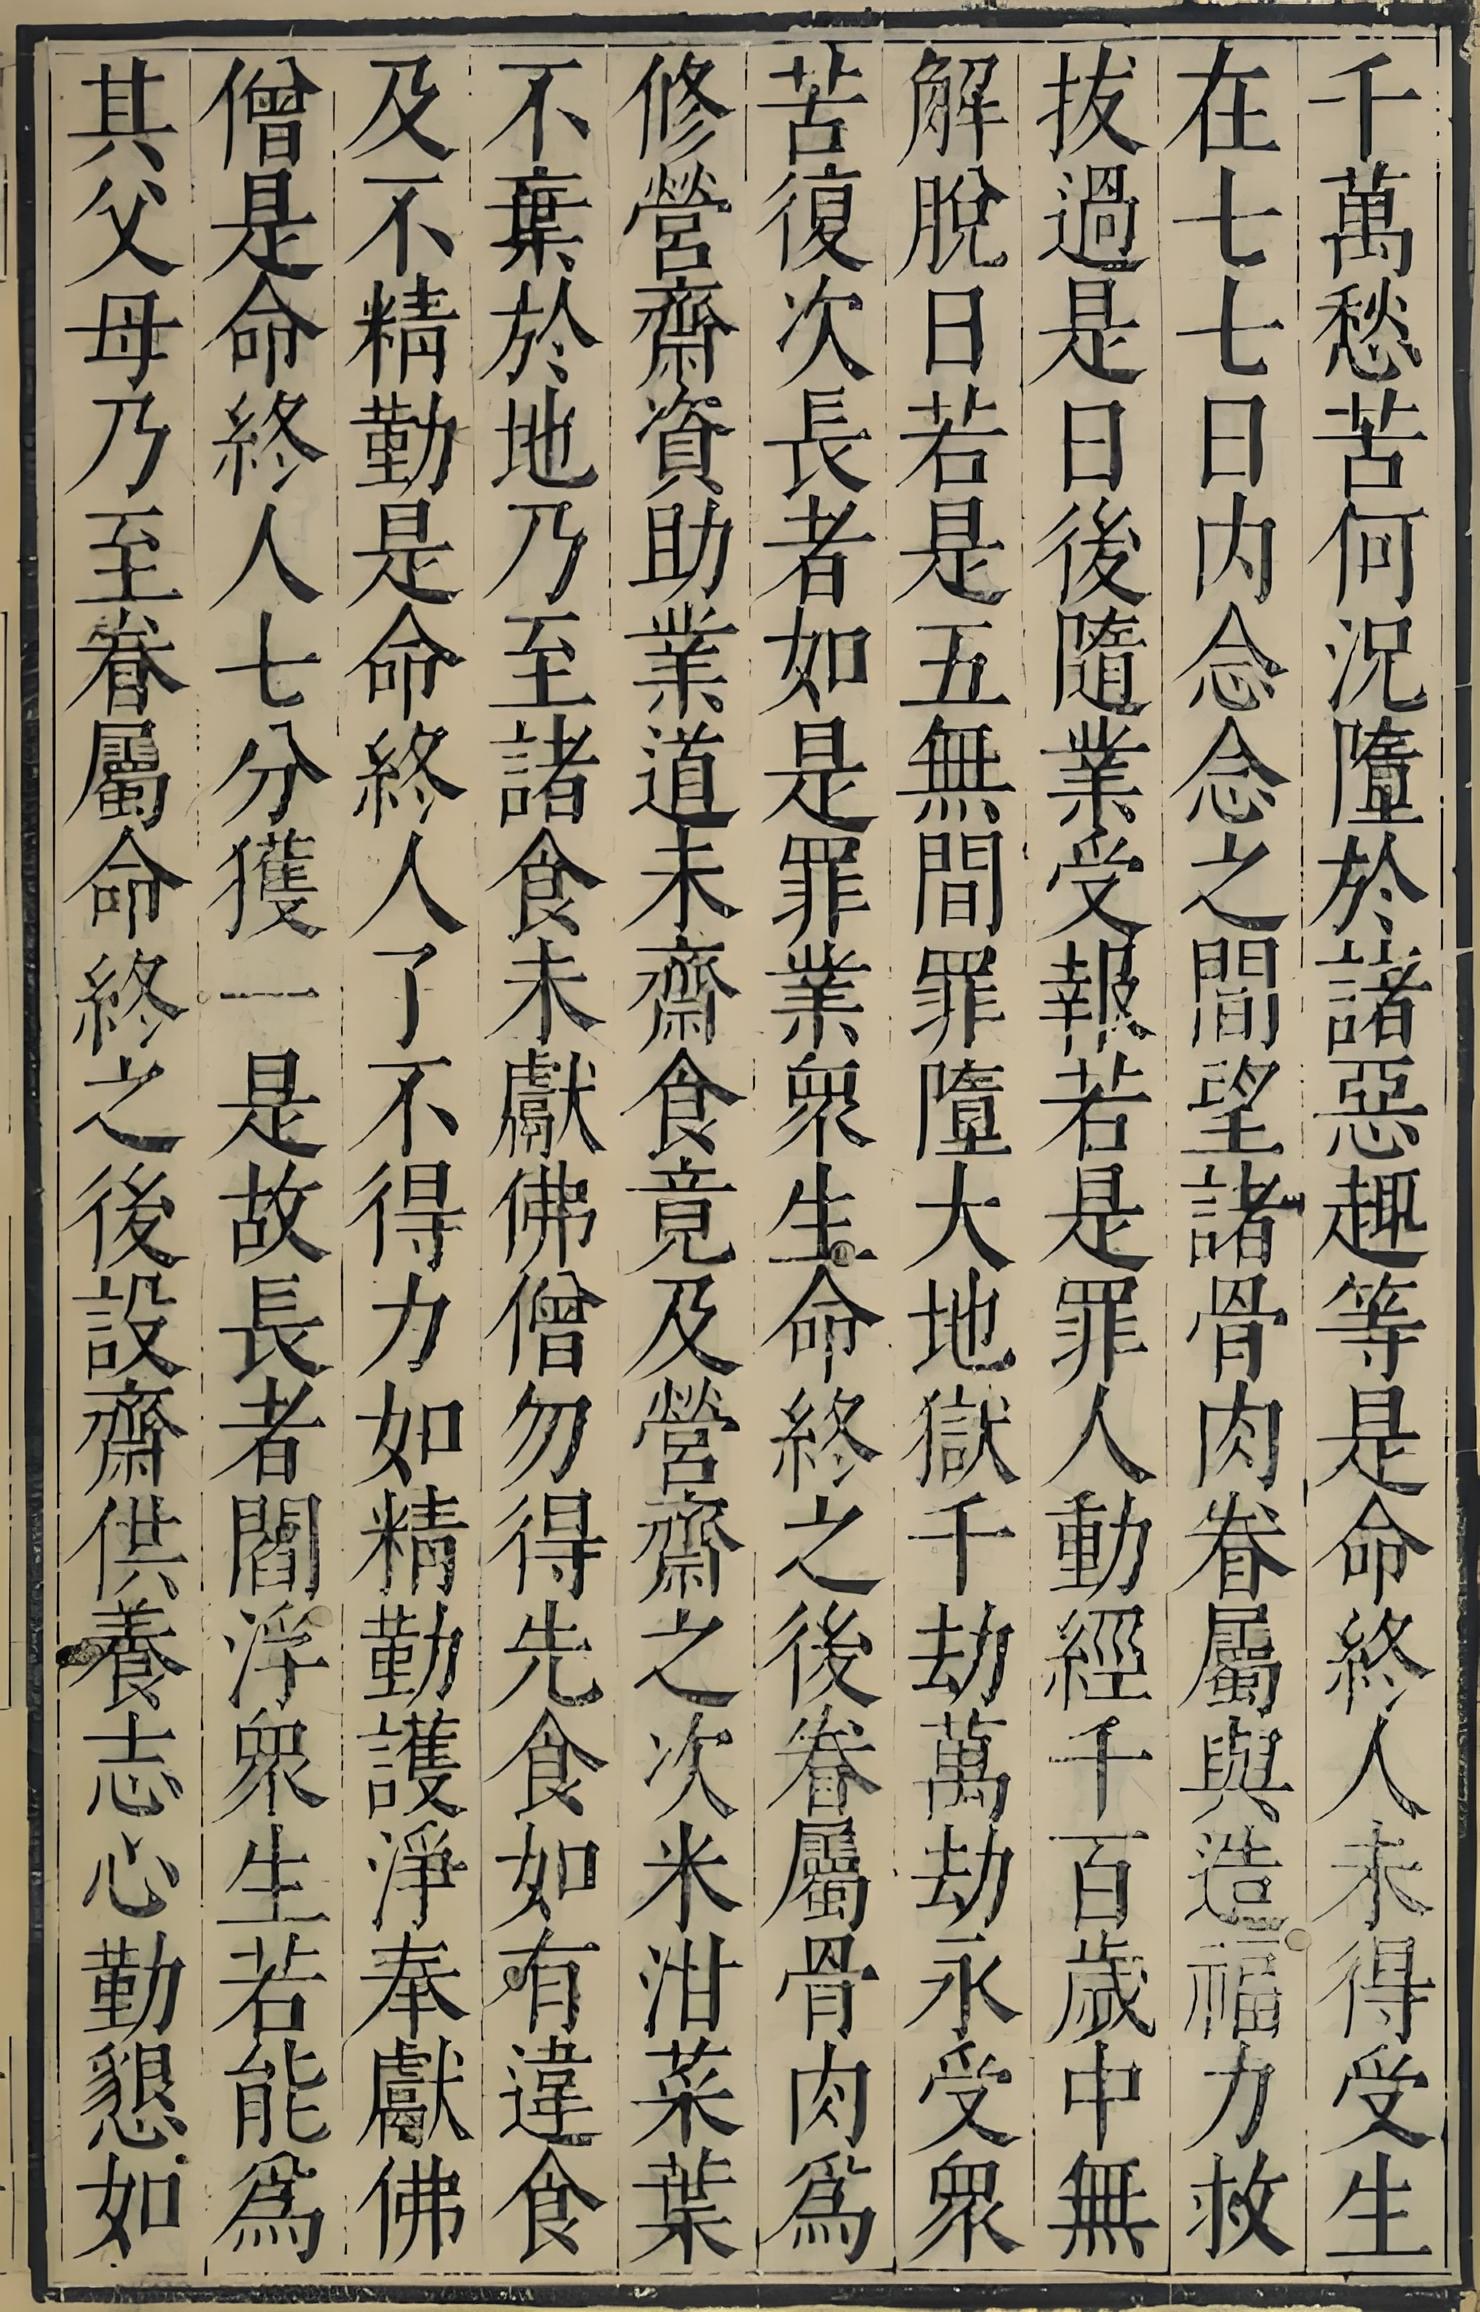 千萬愁苦何況墮於諸惡趣等是命終人未得受生
在七七日内念念之間望諸骨肉眷屬與造福力救
拔過是日後隨業受報若是罪人動經千百歲中無
解脫日若是五無間罪墮大地獄千劫萬劫永受衆
苦復次長者如是罪業衆生命終之後眷屬骨肉爲
修營齋資助業道未齋食竟及營齋之次米泔菜葉
不棄於地乃至諸食未獻佛僧勿得先食如有違食
及不精勤是命終人了不得力如精勤護淨奉獻佛
僧是命終人七分獲一是故長者閻浮衆生若能爲
其父母乃至眷屬命終之後設齋供養志心勤懇如